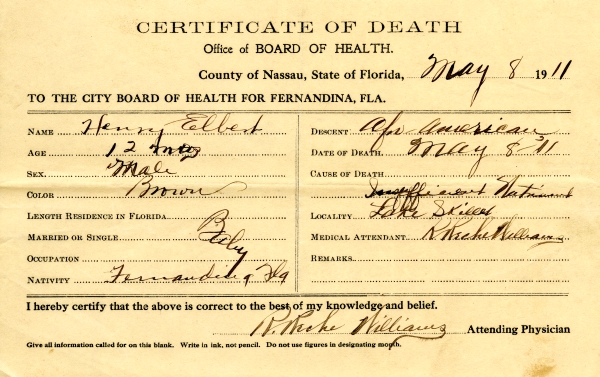 CERTIFICATE OF DEATH
Office of BOARD OF HEALTH.
County of Nassau, State of Florida, May 8 1911
TO THE CITY BOARD OF HEALTH FOR FERNANDINA, FLA.
NAME Henry Elbert
AGE 12 mos
SEX. Male
COLOR Brown
LENGTH RESIDENCE IN FLORIDA
MARRIED OR SINGLE Baby
OCCUPATION
NATIVITY Fernandina Fla
DESCENT Afr American
DATE OF DEATH. May 8 - 11
CAUSE OF DEATH.
Insufficient Nutriment
LOCALITY
MEDICAL ATTENDANT. Williams
REMARKS
I hereby certify that the above is correct to the best of my knowledge and belief.
Williams Attending Physician
Give all information called for on this blank. Write in ink, not pencil. Do not use figures in designating month.